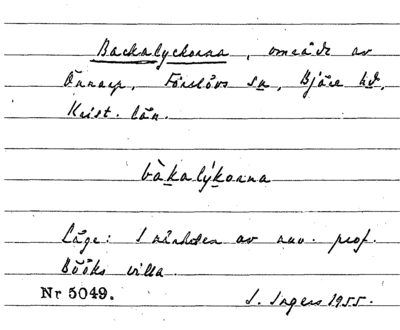 Backalyckorna, område av
Önnarp, Förslövs sn, Bjäre hd,
Krist. län.
bàkalýkorna
Läge: I närheten av nuv. prof.
Bööks villa.
Nr 5049. I. Ingers 1955.